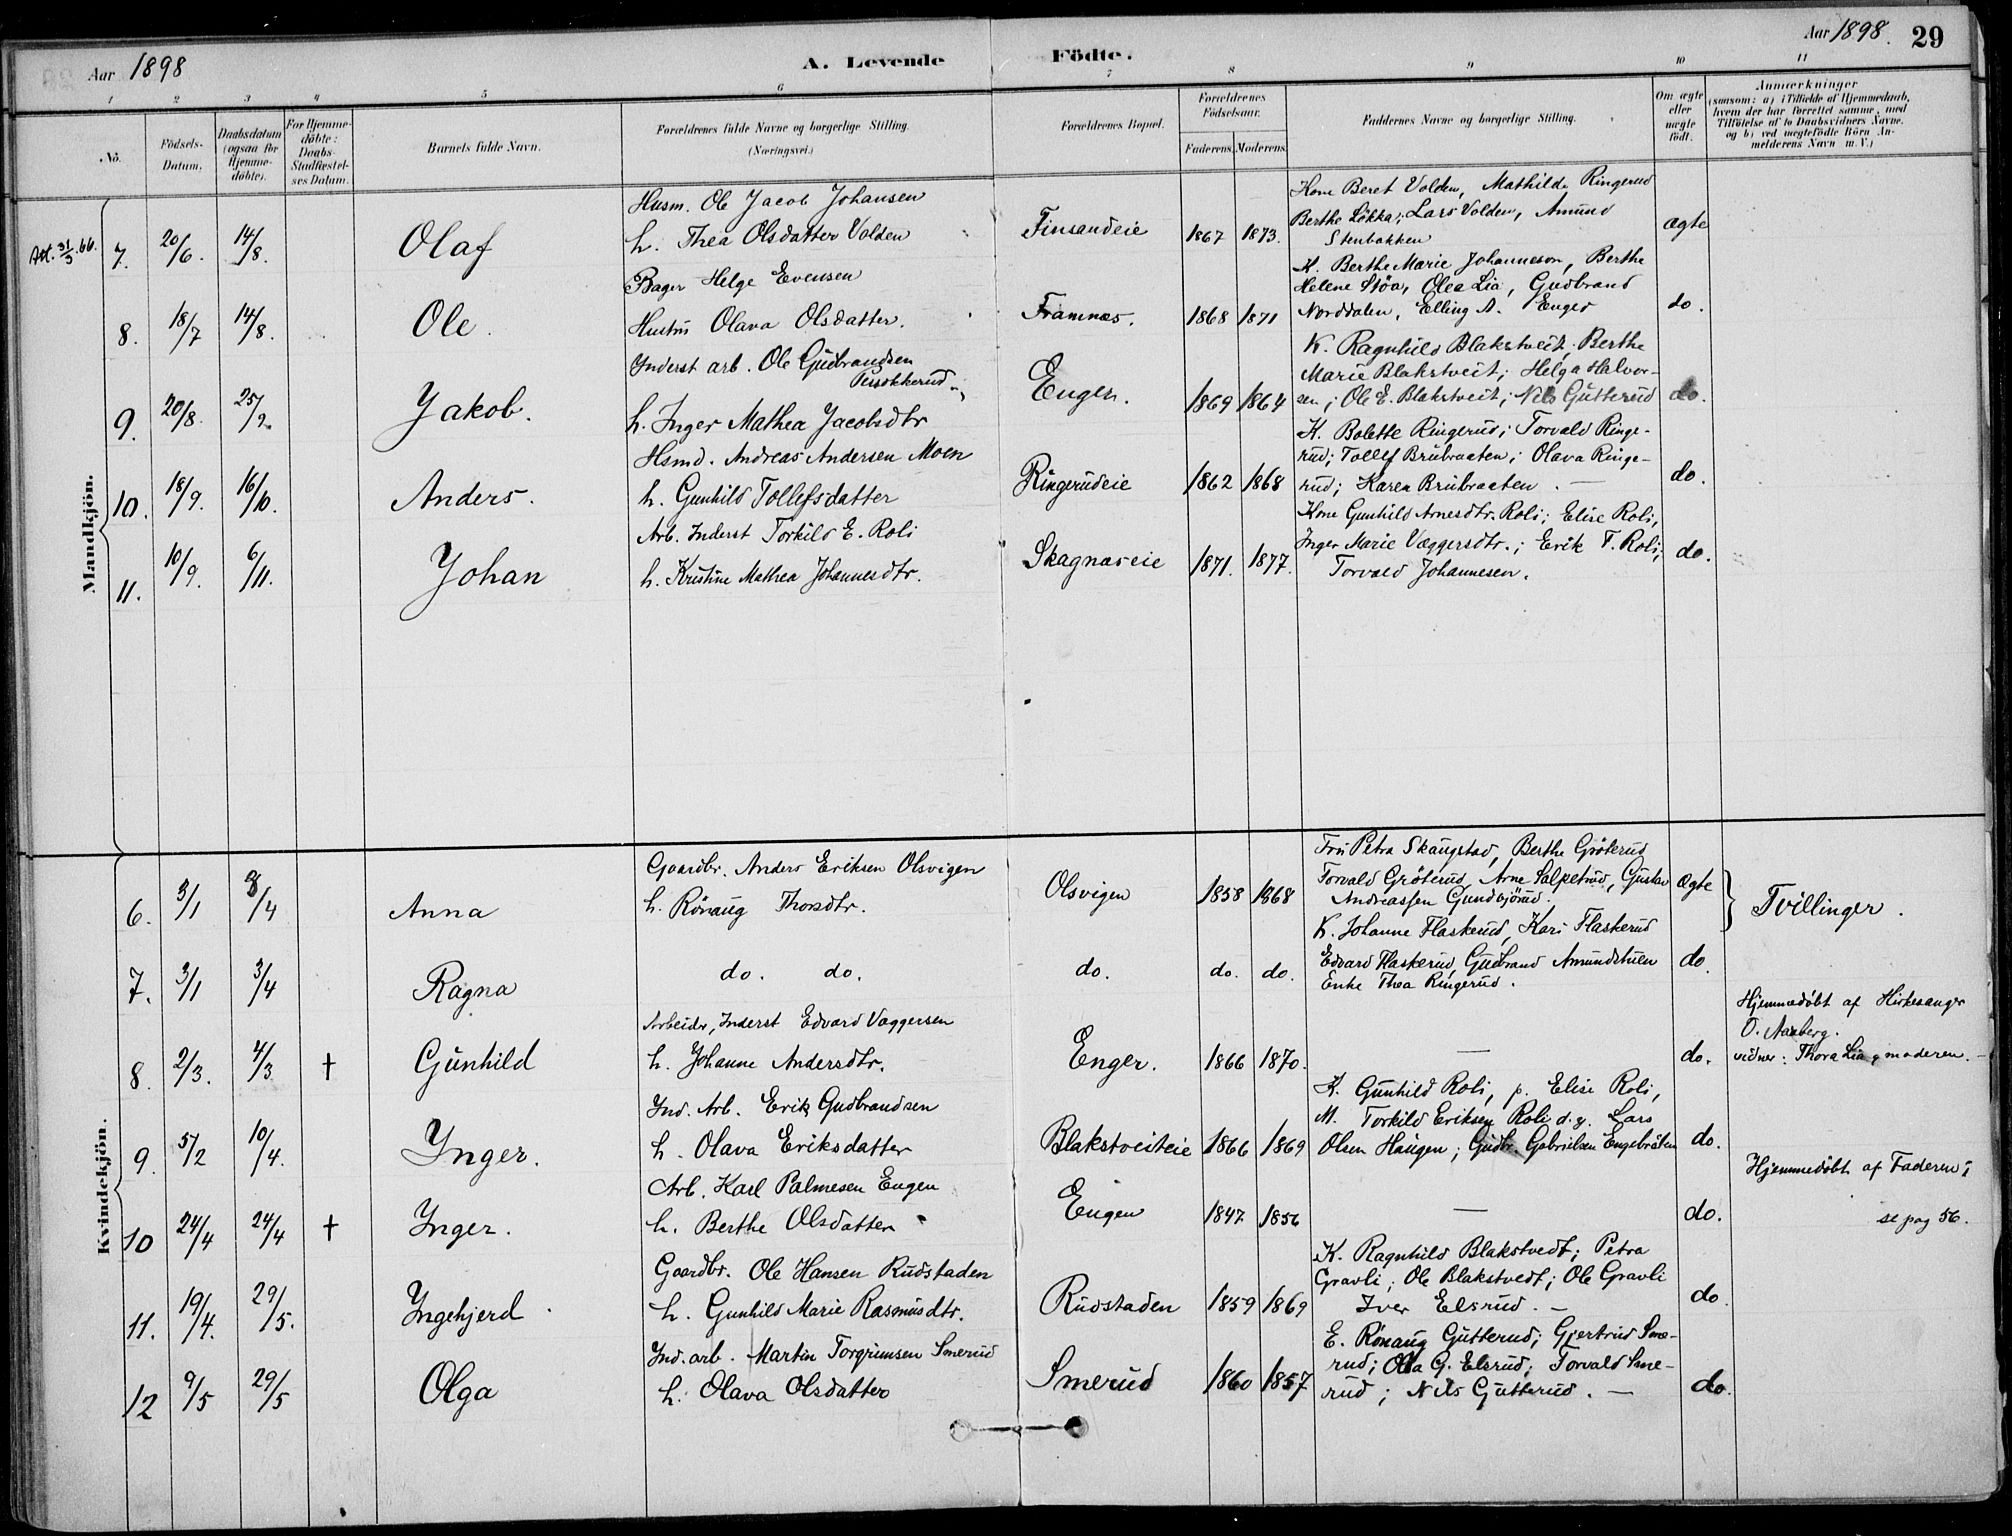 Aar 1898
A. Levende Födte.
Aar 1898. 29
1 2 3 4 5 6 7 8 9 10 11
No.
Födsels-Datum.
Daabsdatum (ogsaa for Hjemmedöbte).
For Hjemmedöbte: Daabs-Stadfæstelses Datum.
Barnets fulde Navn.
Forældrenes fulde Navne og borgerlige Stilling. (Næringsvei.)
Forældrenes Bopæl.
Forældrenes Födselsaar. Faderens. Moderens.
Faddernes Navne og borgerlige Stilling.
Om ægte eller uægte födt.
Anmærkninger (saasom: a) i Tilfælde af Hjemmedaab, hvem der har forrettet samme, med Tilföielse af to Daabsvidners Navne, og b) ved uægtefödte Börn Anmelderens Navn m. V.)
Mandkjön.
Att. 31/3.66. 7. 20/6. 14/8. Olaf
Husm. Ole Jacob Johansen
h. Thea Olsdatter Volden
Finsandeie 1867 1873.
Kone Beret Volden, Mathilde Ringerud
Berthe Løkka; Lars Volden, Amund
Stenbakken
ægte
8. 18/7 14/8. Ole.
Bager Helge Evensen
Hustru Olava Olsdatter.
Framnæs. 1868 1871
K. Berthe Marie Johanneson, Berthe
Helene Støa, Olea Lia, Gudbrand
Norddalen, Elling A. Enger
do.
9. 20/8. 25/9. Jakob.
Inderst arb. Ole Gudbrandsen
h. Inger Mathea Jacobsdtr
Enger. 1869 1864
K. Ragnhild Blakstveit; Berthe
Marie Blakstveit; Helga Halvor-
sen; Ole E. Blakstveit; Nils Gutterud
do.
10. 18/9. 16/10. Anders.
Hsmd. Andreas Andersen Moen
h. Gunhild Tollefsdatter
Ringerudeie 1862 1868
K. Bolette Ringerud; Torvald Ringe-
rud; Tollef Brubraaten; Olava Ringe-
rud; Karen Brubraaten. —
do.
11. 10/9. 6/11. Johan
Arb. Inderst Torkild E. Roli
h. Kristine Mathea Johannesdtr.
Skagnæseie 1871. 1877.
Kone Gunhild Arnesdtr. Roli; Elise Roli,
Inger Marie Væggersdtr.; Erik T. Roli;
Torvald Johannesen.
do.
Kvindekjön.
6. 3/1 3/4 Anna
Gaardbr. Anders Eriksen Olsvigen
h. Rönaug Thorsdtr.
Olsvigen 1858 1868
Fru Petra Skaugstad, Berthe Gröterud
Torvald Gröterud, Arne Salpetrud, Gustav
Andreassen Gundbjörud.
Ægte
Tvillinger.
7. 3/1 3/4 Ragna
do. do.
do. do. do.
K. Johanne Flaskerud, Kari Flaskerud
Edvard Flaskerud, Gudbrand Amundstuen
Enke Thea Ringerud.
do.
8. 2/3. 4/3 † Gunhild
Arbeider, Inderst Edvard Vaggersen
h. Johanne Andersdtr.
Enger. 1866 1870.
—
do.
Hjemmedøbt af Kirkesanger
O. Aaberg.
vidner: Thora Lia, moderen. —
9. 5/2 10/4. Inger.
Ind. Arb. Erik Gudbrandsen
h. Olava Eriksdatter
Blakstveiteie 1866 1869
K. Gunhild Roli, p. Elise Roli,
M. Torkild Eriksen Roli d.y. Lars
Olsen Haugen; Gudbr. Gabrielsen Engebråten
do.
10 24/4 24/4 † Inger.
Arb. Karl Palmesen Eugen
h. Berthe Olsdatter
Eugen 1847 1856
—
do.
Hjemmedøbt af Faderen;
se pag 56.
11. 19/4. 29/5. Ingebjerd
Gaardbr. Ole Hansen Rudstaden
h. Gunhild Marie Rasmusdtr.
Rudstaden 1859 1869
K. Ragnhild Blakstvedt; Petra
Gravli; Ole Blakstvedt; Ole Gravli
Iver Elsrud. —
do.
12 9/5 29/5 Olga
Ind. arb. Martin Torgrimsen Smerud
h. Olava Olsdatter
Smerud 1860 1857
E. Rönaug Gutterud; Gjertrud Sme-
rud; Ola G. Elsrud; Torvald Sme-
rud; Nils Gutterud. —
do.